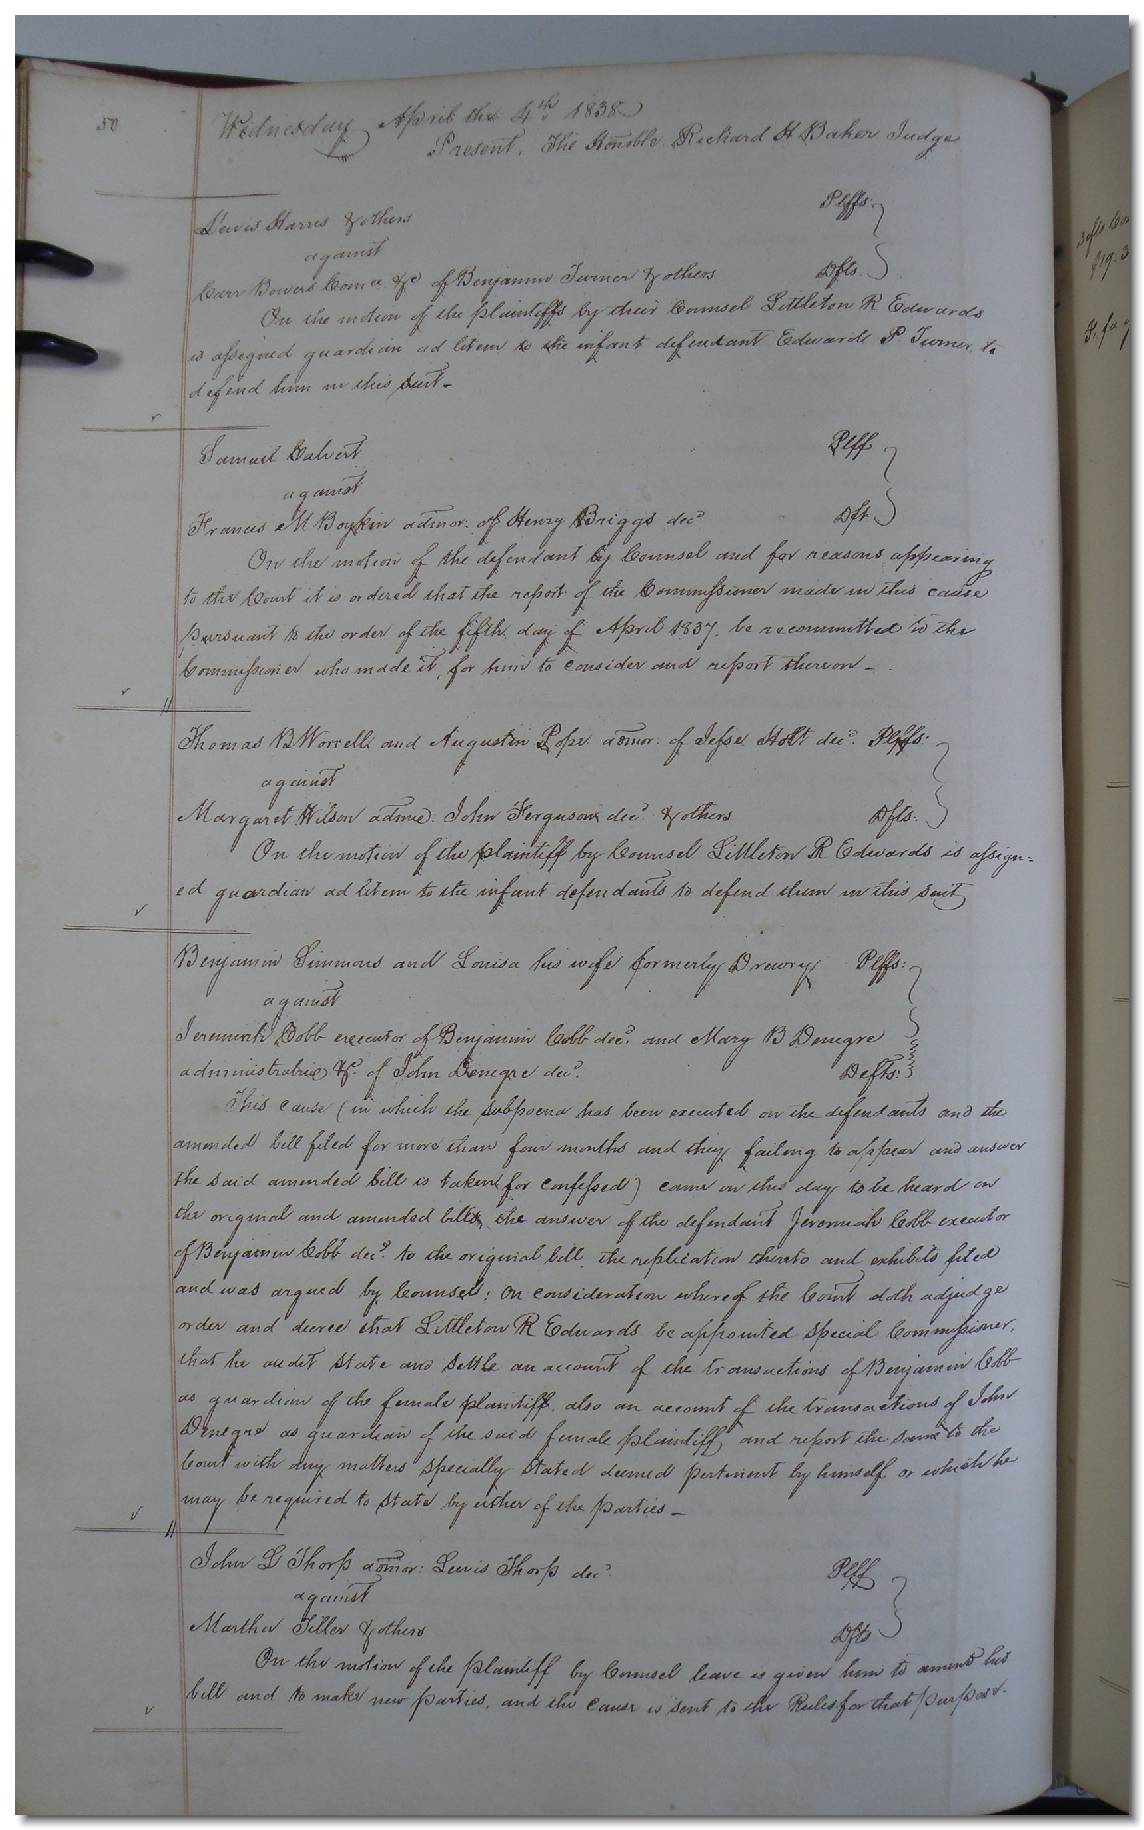 50
Wednesday April the 4th 1838
Present, The Honble. Richard H Baker Judge
Lewis Harris & others Plffs.
against
Carr Bowers Com &c of Benjamin Turner & others Dfts.
On the motion of the plaintiffs by their Counsel Littleton R Edwards
is assigned guardian ad litem to the infant defendant Edwards P Turner, to
defend him in this suit -
Samuel Calvert Plff
against
Francis M Boykin admor. of Henry Briggs decd Dft.
On the motion of the defendant by Counsel and for reasons appearing
to the Court it is ordered that the report of the Commissioner made in this cause
pursuant to the order of the fifth day of April 1837, be recommitted to the
Commissioner who made it, for him to consider and report thereon -
Thomas B Worrell and Augustin Pope admor. of Jesse Holt decd. Plffs.
against
Margaret Wilson admx. John Ferguson decd. & others Dfts.
On the motion of the plaintiff by Counsel Littleton R Edwards is assign=
ed guardian ad litem to the infant defendants to defend them in this suit
Benjamin Simmons and Louisa his wife formerly Drewry Plffs.
against
Jeremiah Cobb executor of Benjamin Cobb decd. and Mary B Denegre
administratrix &c. of John Denegre decd. Defts.
This cause (in which the subpoena has been executed on the defendants and the
amended bill filed for more than four months and they failing to appear and answer
the said amended bill is taken for confessed) came on this day to be heard on
the original and amended bills, the answer of the defendant Jeremiah Cobb executor
of Benjamin Cobb decd. to the original bill, the replication thereto and exhibits filed
and was argued by Counsel; On consideration whereof the Court doth adjudge
order and decree that Littleton R Edwards be appointed special Commissioner,
that he audit state and settle an account of the transactions of Benjamin Cobb
as guardian of the female plaintiff, also an account of the transactions of John
Denegre as guardian of the said female plaintiff, and report the same to the
Court with any matters specially stated deemed pertinent by himself or which he
may be required to state by either of the parties -
John L Thorp admor. Lewis Thorp decd. Plff
against
Martha Tiller & others Dfts
On the motion of the plaintiff by Counsel leave is given him to amend his
bill and to make new parties, and the cause is sent to the Rules for that purpose.